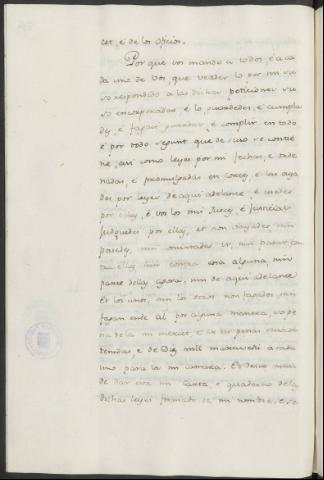 cer, é de los oficios.
Por que vos mando a todos, é a ca
da uno de Vos, que veades lo por mi su
so respondido a las dichas peticiones su
so encorporadas, é lo guardedes, é cumpla
des, é fagais guardar, é complir en todo
é por todo segunt que de suso se contie
ne, asi como leyes por mi fechas, é orde
nadas, é promulgadas en Cortes, é las aya
des por leyes de aqui adelante, é usedes
por ellas, é vos los mis Jueces, é Justicias
judguedes por ellas, et non vayades nin
pasedes, nin consintades ir, nin pasar con
tra ellas nin contra cosa alguna, nin
parte dellas agora, nin de aqui adelante
Et los unos, nin los otros non fagades, nin
fagan ende al por alguna manera, so pe
na de la mi merced é de las penas
tenidas, e de Diez mil maravedis a cada
uno para la mi camara. Et desto mandé
dar esta mi Carta, é quaderno de las
dichas leyes firmado de mi nombre, é se